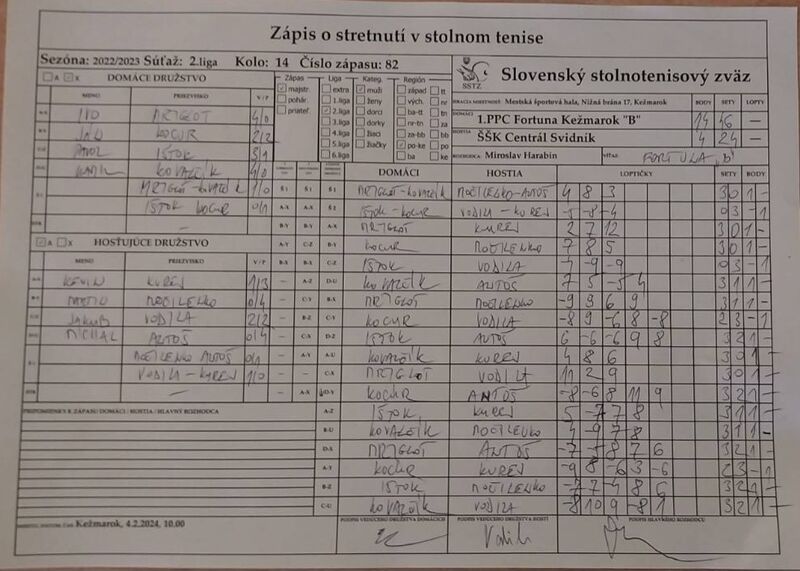 Zápis o stretnutí v stolnom tenise
Sezóna: 2022/2023 Súťaž: 2.liga Kolo: 14 Číslo zápasu: 82
SSTZ
Slovenský stolnotenisový zväz
DOMÁCE DRUŽSTVO
MENO PRIEZVISKO V / P
IVO MRIGLOT 4/0
JÁN KOCUR 2/2
PAVOL IŠTOK 3/1
KAMIL KOVALČÍK 4/0
MRIGLOT-KOVALČÍK 1/0
IŠTOK KOCUR 0/1
Zápas Liga Kateg. Región
majstr. extra muži západ tt
pohár. 1.liga ženy vých. nr
priateľ. 2.liga dorci ba-tt tn
3.liga dorky nr-tn za
4.liga žiaci za-bb bb
5.liga žiačky po-ke po
6.liga ba ke
Mestská športová hala, Nižná brána 17, Kežmarok BODY SETY LOPTY
DOMÁCI 1.PPC Fortuna Kežmarok "B" 14 46 –
HOSTIA ŠŠK Centrál Svidník 4 24 –
ROZHODCA Miroslav Harabin VÍŤAZ FORTUNA „B"
HOSŤUJÚCE DRUŽSTVO
MENO PRIEZVISKO V / P
KEVIN KUREJ 1/3
MARTIN MOČILENKO 0/4
JAKUB VODILA 2/2
MICHAL ANTOŠ 0/4
MOČILENKO ANTOŠ 0/1
VODILA-KUREJ 1/0
DOMÁCI HOSTIA LOPTIČKY SETY BODY
MRIGLOT-KOVALČÍK MOČILENKO-ANTOŠ 4 8 3 3 0 1 –
IŠTOK-KOCUR VODILA-KUREJ -5 -8 -4 0 3 – 1
MRIGLOT KUREJ 2 7 12 3 0 1 –
KOCUR MOČILENKO 7 8 5 3 0 1 –
IŠTOK VODILA -9 -9 0 3 – 1
KOVALČÍK ANTOŠ 7 5 -5 4 3 1 1 –
MRIGLOT MOČILENKO -9 9 6 9 3 1 1 –
KOCUR VODILA -8 9 -6 8 -8 2 3 – 1
IŠTOK ANTOŠ 6 -6 -6 9 8 3 2 1 –
KOVALČÍK KUREJ 4 8 6 3 0 1 –
MRIGLOT VODILA 11 2 9 3 0 1 –
KOCUR ANTOŠ -8 -6 8 11 9 3 2 1 –
IŠTOK KUREJ 5 -7 7 8 3 1 1 –
KOVALČÍK MOČILENKO 4 -9 7 8 3 1 1 –
MRIGLOT ANTOŠ -7 -8 8 7 6 3 2 1 –
KOCUR KUREJ -9 8 -6 3 -6 2 3 – 1
IŠTOK MOČILENKO -7 7 4 8 6 3 2 1 –
KOVALČÍK VODILA -8 10 9 -8 1 3 2 1 –
PRIPOMIENKY K ZÁPASU DOMÁCI / HOSTIA / HLAVNÝ ROZHODCA
Kežmarok, 4.2.2024, 10.00
PODPIS VEDÚCEHO DRUŽSTVA DOMÁCICH PODPIS VEDÚCEHO DRUŽSTVA HOSTÍ PODPIS HLAVNÉHO ROZHODCU